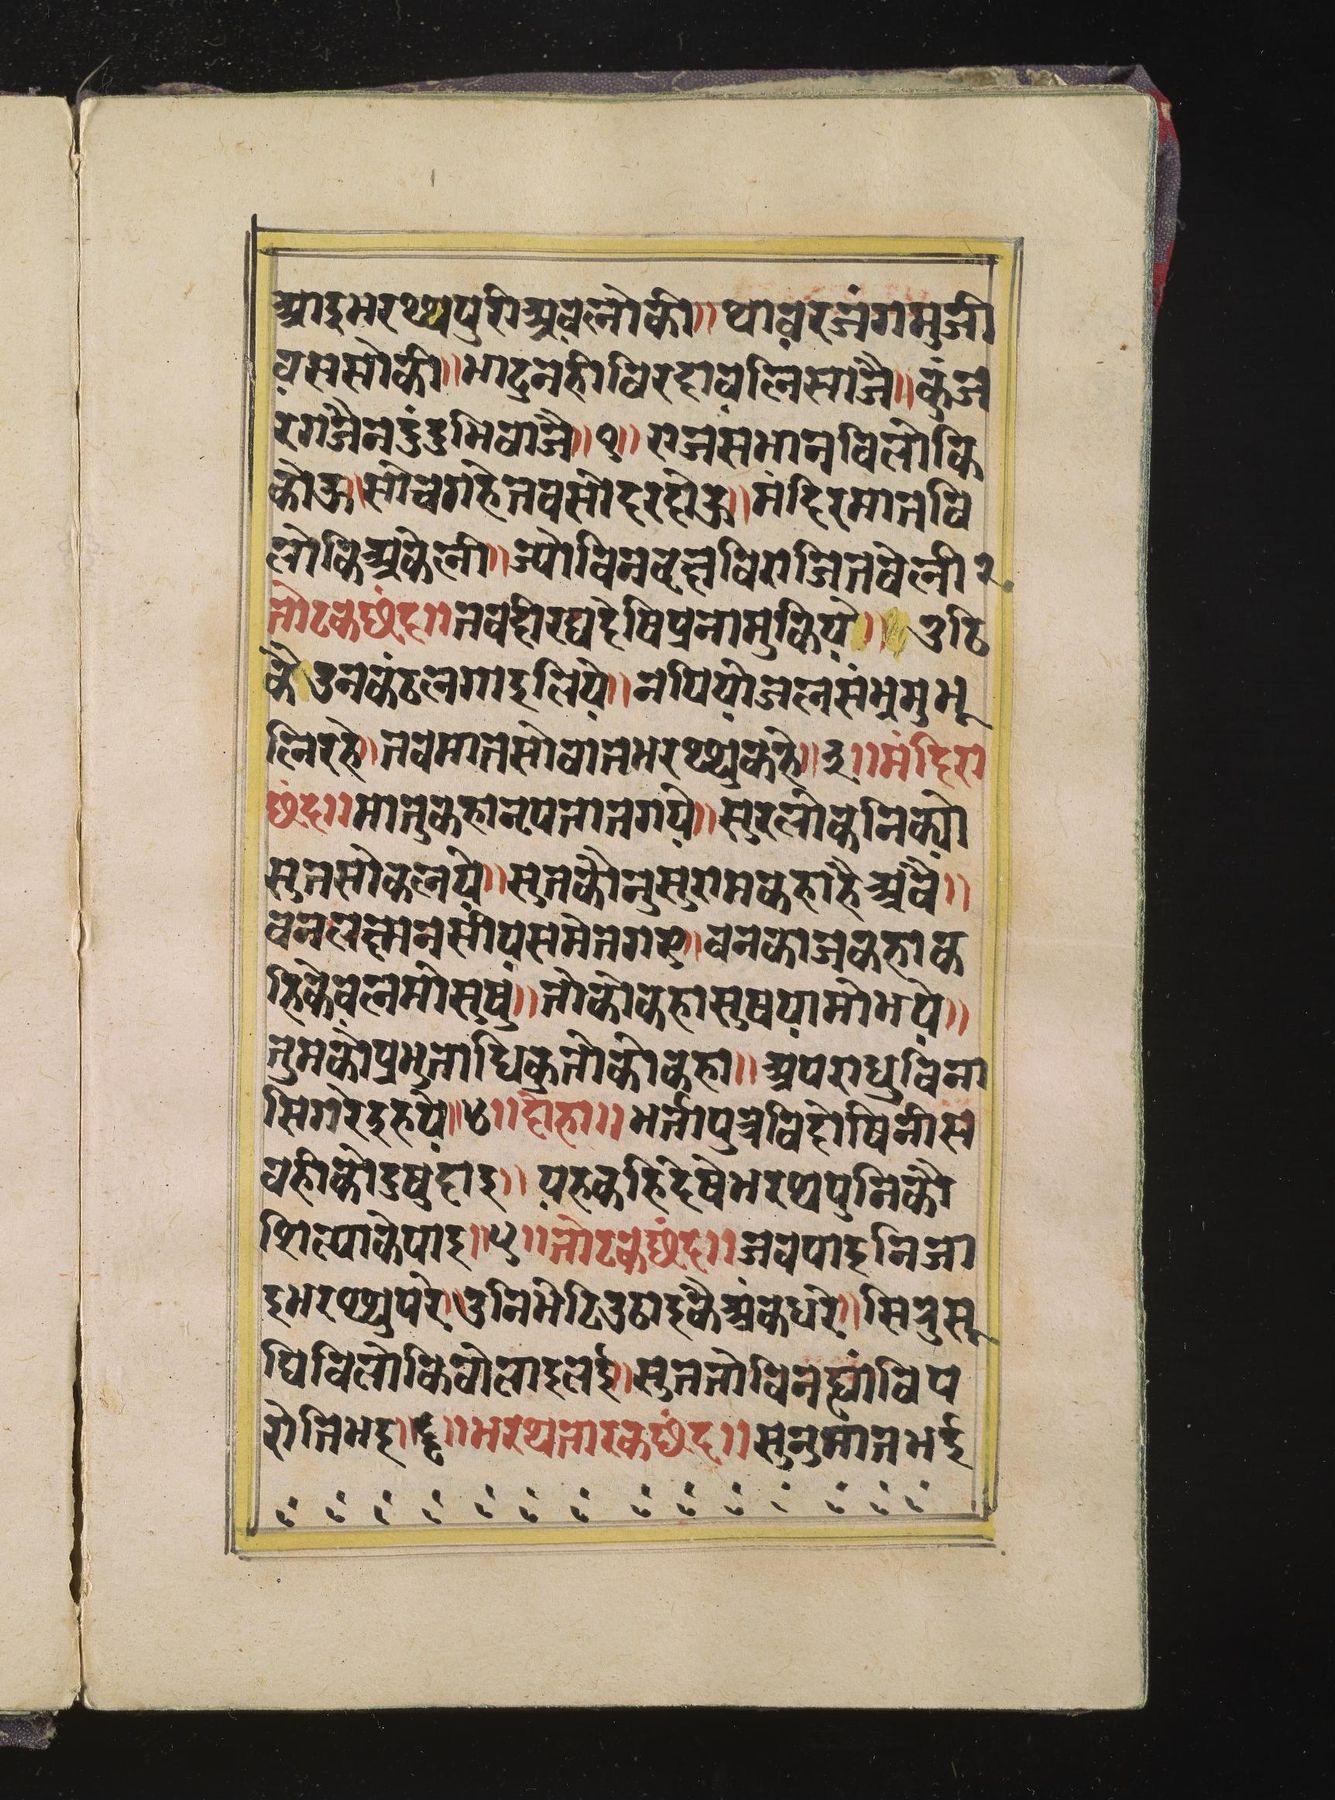 आइभरथ्थपुरीअवलोकी॥थावरजंगमुजी
वससोकी॥भाटुनहीविरदावलिसाजै॥कुंज
रगजैनदुंदुभिवाजै॥१॥राजसभानविलोकि
कोऊ॥सोचगहेतवसोदरदोऊ॥मंदिरमातवि
लोकिअकेली॥ज्योविनवृछविराजितवेली२
तोटकछंद॥तवदीरघदेषिप्रनामुकिय॥उठि
कैउनकंठलगाइलिये॥नपियोजलसंभ्रमुभू
लिरहे॥तवमातसोवातभरथ्थुकहे॥३॥मंदिरा
छंद॥मातुकहानृपतातगये॥सुरलोकनिक्यो
सुतसोकलये॥सुतकौनुसुरामकहांहैअवै॥
वनलछमनसीयसमेतगए॥वनकाजकहाक
हिकेवलमोसुषुं॥तोकोकहासुषयामोभये॥
तुमकोप्रभुताधिकतोकोकहा॥अपराधुविना
सिगरेइहये॥४॥दोहा॥भर्तापुत्रविदोषिनीस
वहीकोदुषुदाइ॥यहकहिदेषेभरथपुनिकौ
शिल्याकेपाइ॥५॥तोटकछंद॥जवपाइनिजा
इभरथ्थुपरे॥उनिभेटिउठाइकैअंकधरे॥सिरुसू
घिविलोकिवोलाइलई॥सुततोविनह्यांविप
रीतिभइ॥६॥भरथतारकछंद॥सुनुमातभई